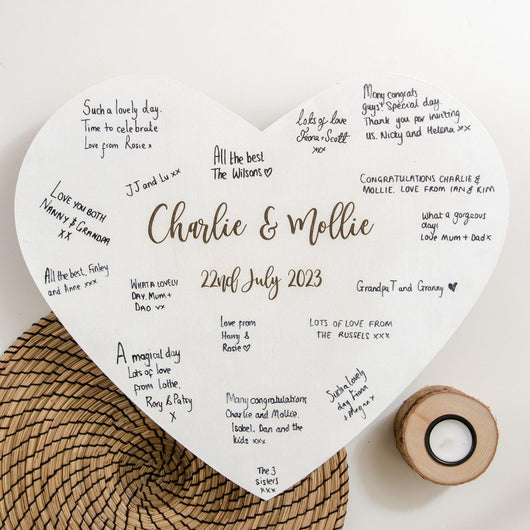 Such a lovely day.
Time to celebrate
Love from Rosie x
Lots of love
Fiona + Scott
xxx
Many congrats
guys! Special day.
Thank you for inviting
us. Nicky and Helena xxx
All the best
The Wilsons ♡
JJ and Lu xx
CONGRATULATIONS CHARLIE &
MOLLIE. LOVE FROM IAN & KIM
LOVE YOU BOTH
NANNY & GRANDPA
XX
Charlie & Mollie
What a gorgeous
day!
Love Mum + Dad x
22nd July 2023
All the best, Finley
and Anne xxx
WHAT A LOVELY
DAY. MUM +
DAD xx
Grandpa T and Granny ♥
Love from
Harry &
Rosie ♡
LOTS OF LOVE FROM
THE RUSSELS XXX
A magical day
Lots of love
from Lottie,
Rory & Patsy
X
Many congratulations,
Charlie and Mollie.
Isobel, Dan and the
kids xxx
Such a lovely
day
The 3
Sisters
xxx